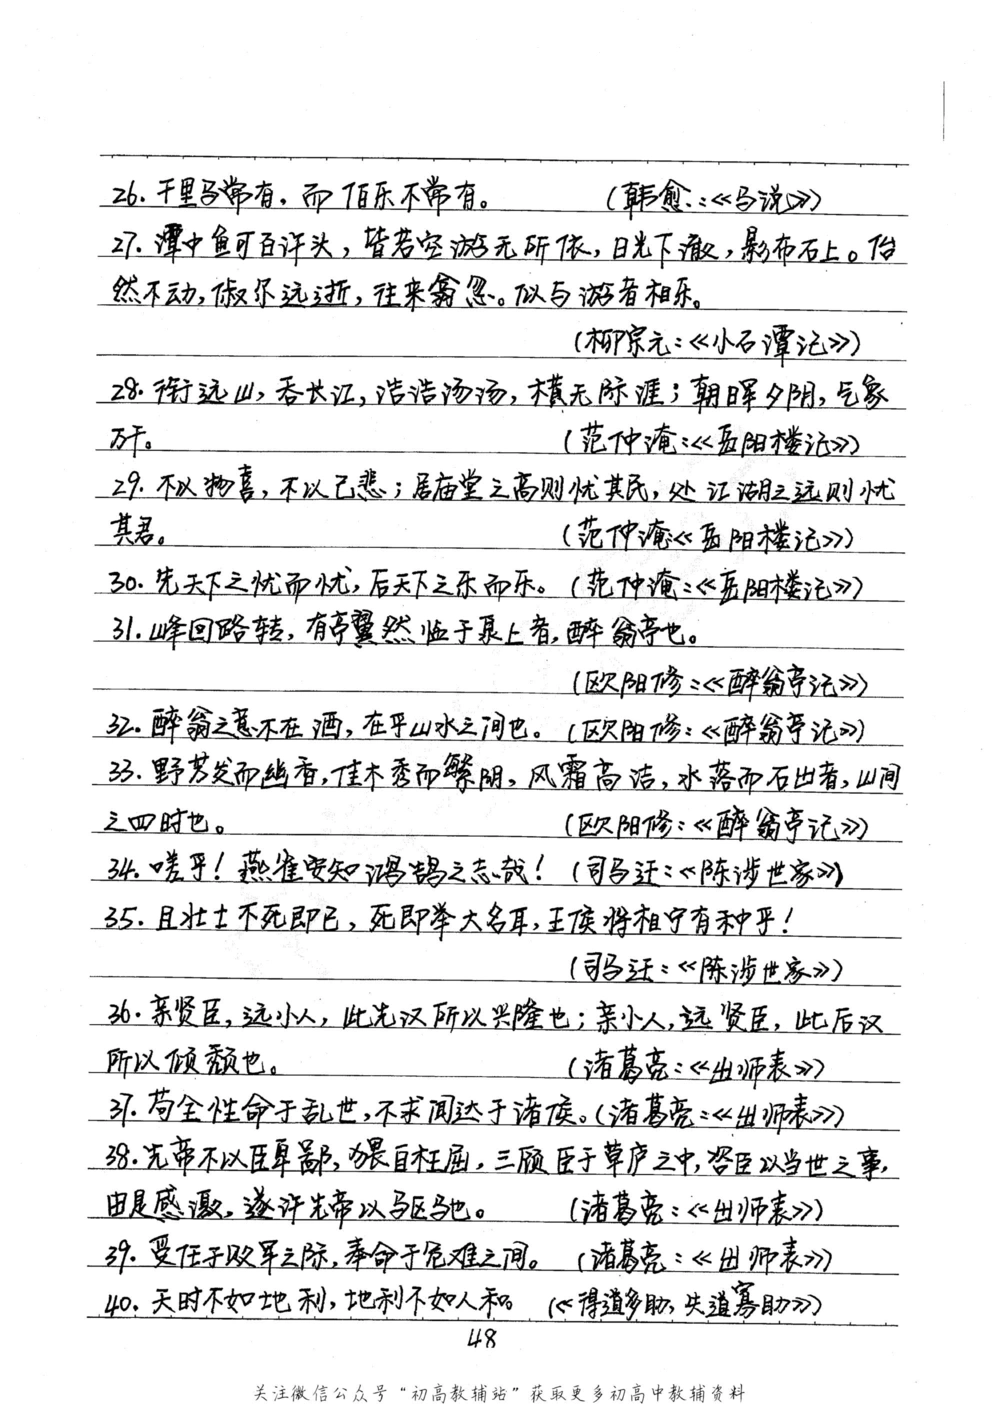 26.千里马常有，而伯乐不常有。 （韩愈：《马说》）
27.潭中鱼可百许头，皆若空游无所依，日光下澈，影布石上。佁
然不动，俶尔远逝，往来翕忽。似与游者相乐。
（柳宗元：《小石潭记》）
28.衔远山，吞长江，浩浩汤汤，横无际涯；朝晖夕阴，气象
万千。 （范仲淹：《岳阳楼记》）
29.不以物喜，不以己悲；居庙堂之高则忧其民，处江湖之远则忧
其君。 （范仲淹《岳阳楼记》）
30.先天下之忧而忧，后天下之乐而乐。（范仲淹：《岳阳楼记》）
31.峰回路转，有亭翼然临于泉上者，醉翁亭也。
（欧阳修：《醉翁亭记》）
32.醉翁之意不在酒，在乎山水之间也。（欧阳修：《醉翁亭记》）
33.野芳发而幽香，佳木秀而繁阴，风霜高洁，水落而石出者，山间
之四时也。 （欧阳修：《醉翁亭记》）
34.嗟乎！燕雀安知鸿鹄之志哉！（司马迁：《陈涉世家》）
35.且壮士不死即已，死即举大名耳，王侯将相宁有种乎！
（司马迁：《陈涉世家》）
36.亲贤臣，远小人，此先汉所以兴隆也；亲小人，远贤臣，此后汉
所以倾颓也。 （诸葛亮：《出师表》）
37.苟全性命于乱世，不求闻达于诸侯。（诸葛亮：《出师表》）
38.先帝不以臣卑鄙，猥自枉屈，三顾臣于草庐之中，咨臣以当世之事，
由是感激，遂许先帝以马区马也。 （诸葛亮：《出师表》）
39.受任于败军之际，奉命于危难之间。（诸葛亮：《出师表》）
40.天时不如地利，地利不如人和。 （《得道多助，失道寡助》）
48
关注微信公众号“初高教辅站”获取更多初高中教辅资料